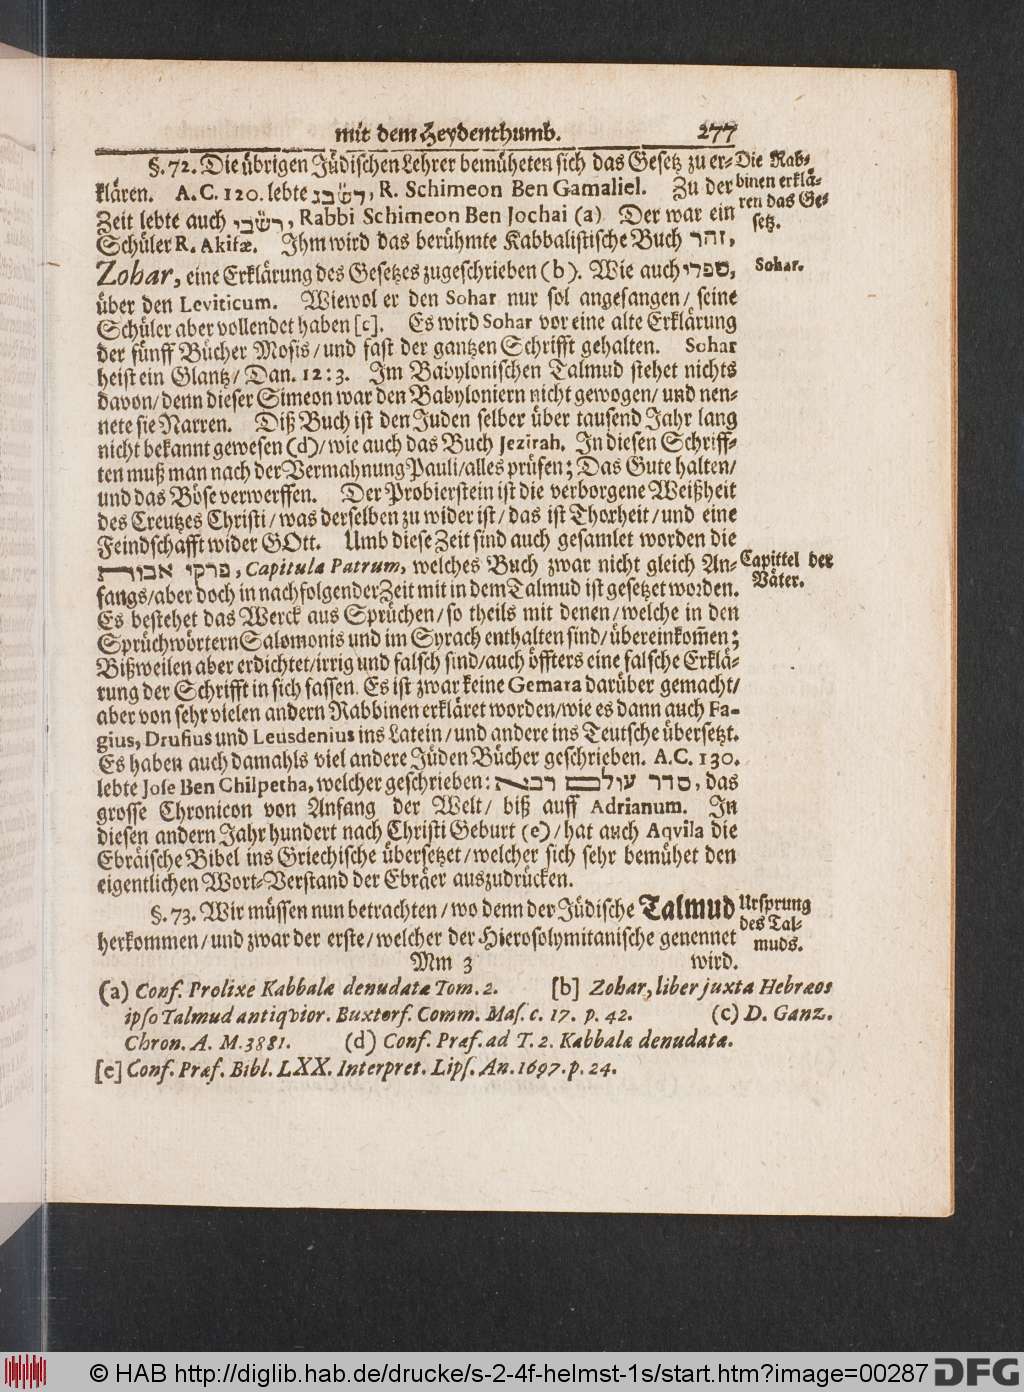 mit dem Heydenthumb. 277
§. 72. Die übrigen Jüdischen Lehrer bemüheten sich das Gesetz zu er-
klären. A. C. 120. lebte רשב״ג, R. Schimeon Ben Gamaliel. Zu der
Zeit lebte auch רשב״י, Rabbi Schimeon Ben Jochai (a) Der war ein
Schüler R. Akifæ. Ihm wird das berühmte Kabbalistische Buch זהר,
Zohar, eine Erklärung des Gesetzes zugeschrieben (b). Wie auch ספרי,
über den Leviticum. Wiewol er den Sohar nur sol angefangen / seine
Schüler aber vollendet haben [c]. Es wird Sohar vor eine alte Erklärung
der fünff Bücher Mosis / und fast der gantzen Schrifft gehalten. Sohar
heist ein Glantz / Dan. 12:3. Im Babylonischen Talmud stehet nichts
davon / denn dieser Simeon war den Babyloniern nicht gewogen / und nen-
nete sie Narren. Diß Buch ist den Juden selber über tausend Jahr lang
nicht bekannt gewesen (d) / wie auch das Buch Jezirah. In diesen Schriff-
ten muß man nach der Vermahnung Pauli / alles prüfen; Das Gute halten /
und das Böse verwerffen. Der Probierstein ist die verborgene Weißheit
des Creutzes Christi / was derselben zu wider ist / das ist Thorheit / und eine
Feindschafft wider GOtt. Umb diese Zeit sind auch gesamlet worden die
פרקי אבות, Capitula Patrum, welches Buch zwar nicht gleich An-
fangs / aber doch in nachfolgender Zeit mit in dem Talmud ist gesetzet worden.
Es bestehet das Werck aus Sprüchen / so theils mit denen / welche in den
Sprüchwörtern Salomonis und im Syrach enthalten sind / übereinkom̃en;
Bißweilen aber erdichtet / irrig und falsch sind / auch öffters eine falsche Erklä-
rung der Schrifft in sich fassen. Es ist zwar keine Gemara darüber gemacht /
aber von sehr vielen andern Rabbinen erkläret worden / wie es dann auch Fa-
gius, Drusius und Leusdenius ins Latein / und andere ins Teutsche übersetzt.
Es haben auch damahls viel andere Jüden Bücher geschrieben. A. C. 130.
lebte Jose Ben Chilpetha, welcher geschrieben: סדר עולם רבא, das
grosse Chronicon von Anfang der Welt / biß auff Adrianum. In
diesen andern Jahr hundert nach Christi Geburt (e) / hat auch Aqvila die
Ebräische Bibel ins Griechische übersetzet / welcher sich sehr bemühet den
eigentlichen Wort-Verstand der Ebräer auszudrücken.
§. 73. Wir müssen nun betrachten / wo denn der Jüdische Talmud
herkommen / und zwar der erste / welcher der Hierosolymitanische genennet
Mm 3 wird.
Die Rab-
binen erklä-
ren das Ge-
setz.
Sohar.
Capittel der
Väter.
Ursprung
des Tal-
muds.
(a) Conf. Prolixe Kabbala denudata Tom. 2. [b] Zohar, liber juxta Hebræos
ipso Talmud antiqvior. Buxtorf. Comm. Mas. c. 17. p. 42. (c) D. Ganz.
Chron. A. M. 3881. (d) Conf. Præf. ad T. 2. Kabbala denudata.
[e] Conf. Præf. Bibl. LXX. Interpret. Lips. An. 1697. p. 24.
© HAB http://diglib.hab.de/drucke/s-2-4f-helmst-1s/start.htm?image=00287 DFG